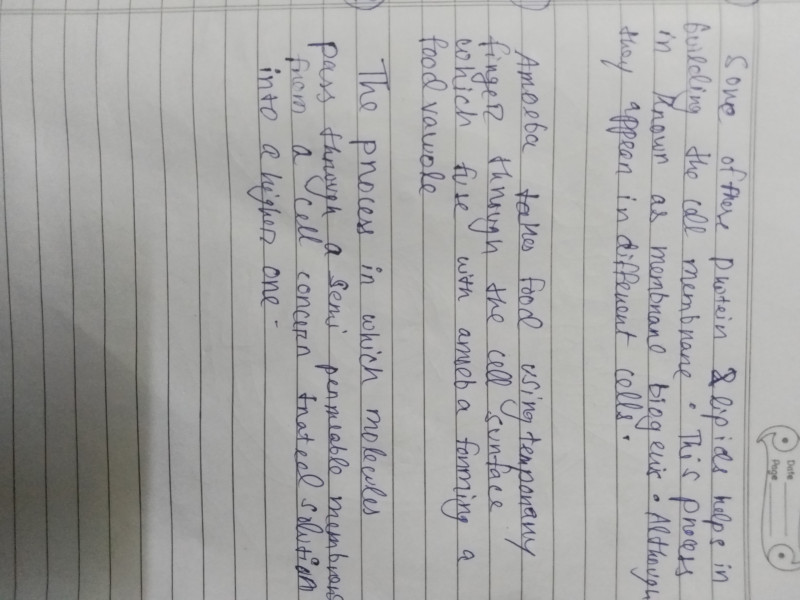 Date
Page
Some of these protein & lipids helps in
building the cell membrane. This process
in known as membrane biogenis. Although
they appear in different cells.
Amoeba takes food using temporary
finger through the cell surface
which fuse with amoeba forming a
food vacuole
The process in which molecules
pass through a semi permeable membrane
from a cell concern trateal solution
into a higher one.